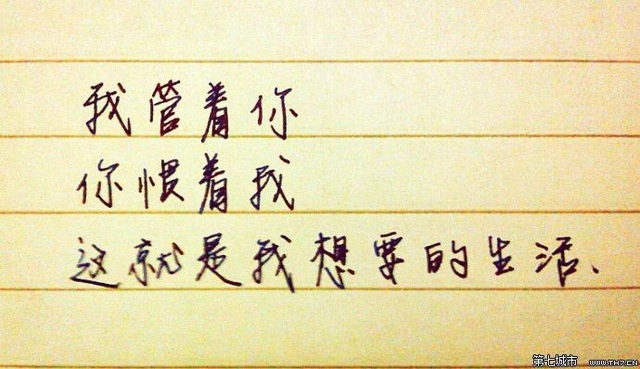 我管着你
你惯着我
这就是我想要的生活、
第七城市
WWW.TH7.CN